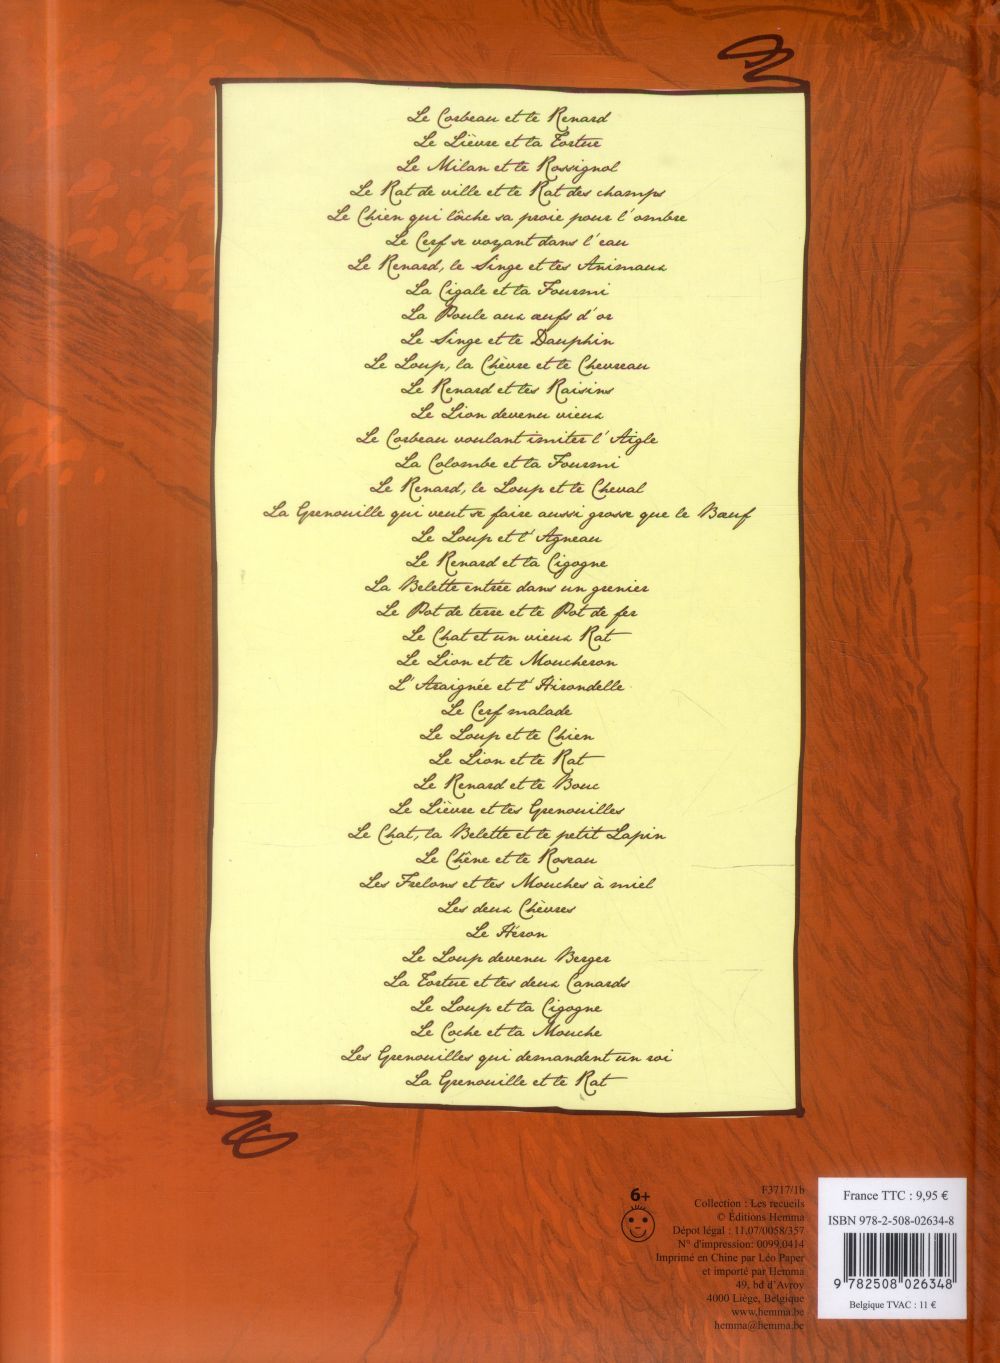 Le Corbeau et le Renard
Le Lièvre et la Tortue
Le Milan et le Rossignol
Le Rat de ville et le Rat des champs
Le Chien qui lâche sa proie pour l'ombre
Le Cerf se voyant dans l'eau
Le Renard, le Singe et les Animaux
La Cigale et la Fourmi
La Poule aux œufs d'or
Le Singe et le Dauphin
Le Loup, la Chèvre et le Chevreau
Le Renard et les Raisins
Le Lion devenu vieux
Le Corbeau voulant imiter l'Aigle
La Colombe et la Fourmi
Le Renard, le Loup et le Cheval
La Grenouille qui veut se faire aussi grosse que le Bœuf
Le Loup et l'Agneau
Le Renard et la Cigogne
La Belette entrée dans un grenier
Le Pot de terre et le Pot de fer
Le Chat et un vieux Rat
Le Lion et le Moucheron
L'Araignée et l'Hirondelle
Le Cerf malade
Le Loup et le Chien
Le Lion et le Rat
Le Renard et le Bouc
Le Lièvre et les Grenouilles
Le Chat, la Belette et le petit Lapin
Le Chêne et le Roseau
Les Frelons et les Mouches à miel
Les deux Chèvres
Le Héron
Le Loup devenu Berger
La Tortue et les deux Canards
Le Loup et la Cigogne
Le Coche et la Mouche
Les Grenouilles qui demandent un roi
La Grenouille et le Rat
6+
F3717/1b
Collection : Les recueils
© Éditions Hemma
Dépot légal : 11.07/0058/357
N° d'impression: 0099.0414
Imprimé en Chine par Léo Paper
et importé par Hemma
49, bd d'Avroy
4000 Liège, Belgique
www.hemma.be
hemma@hemma.be
France TTC : 9,95 €
ISBN 978-2-508-02634-8
9 782508 026348
Belgique TVAC : 11 €